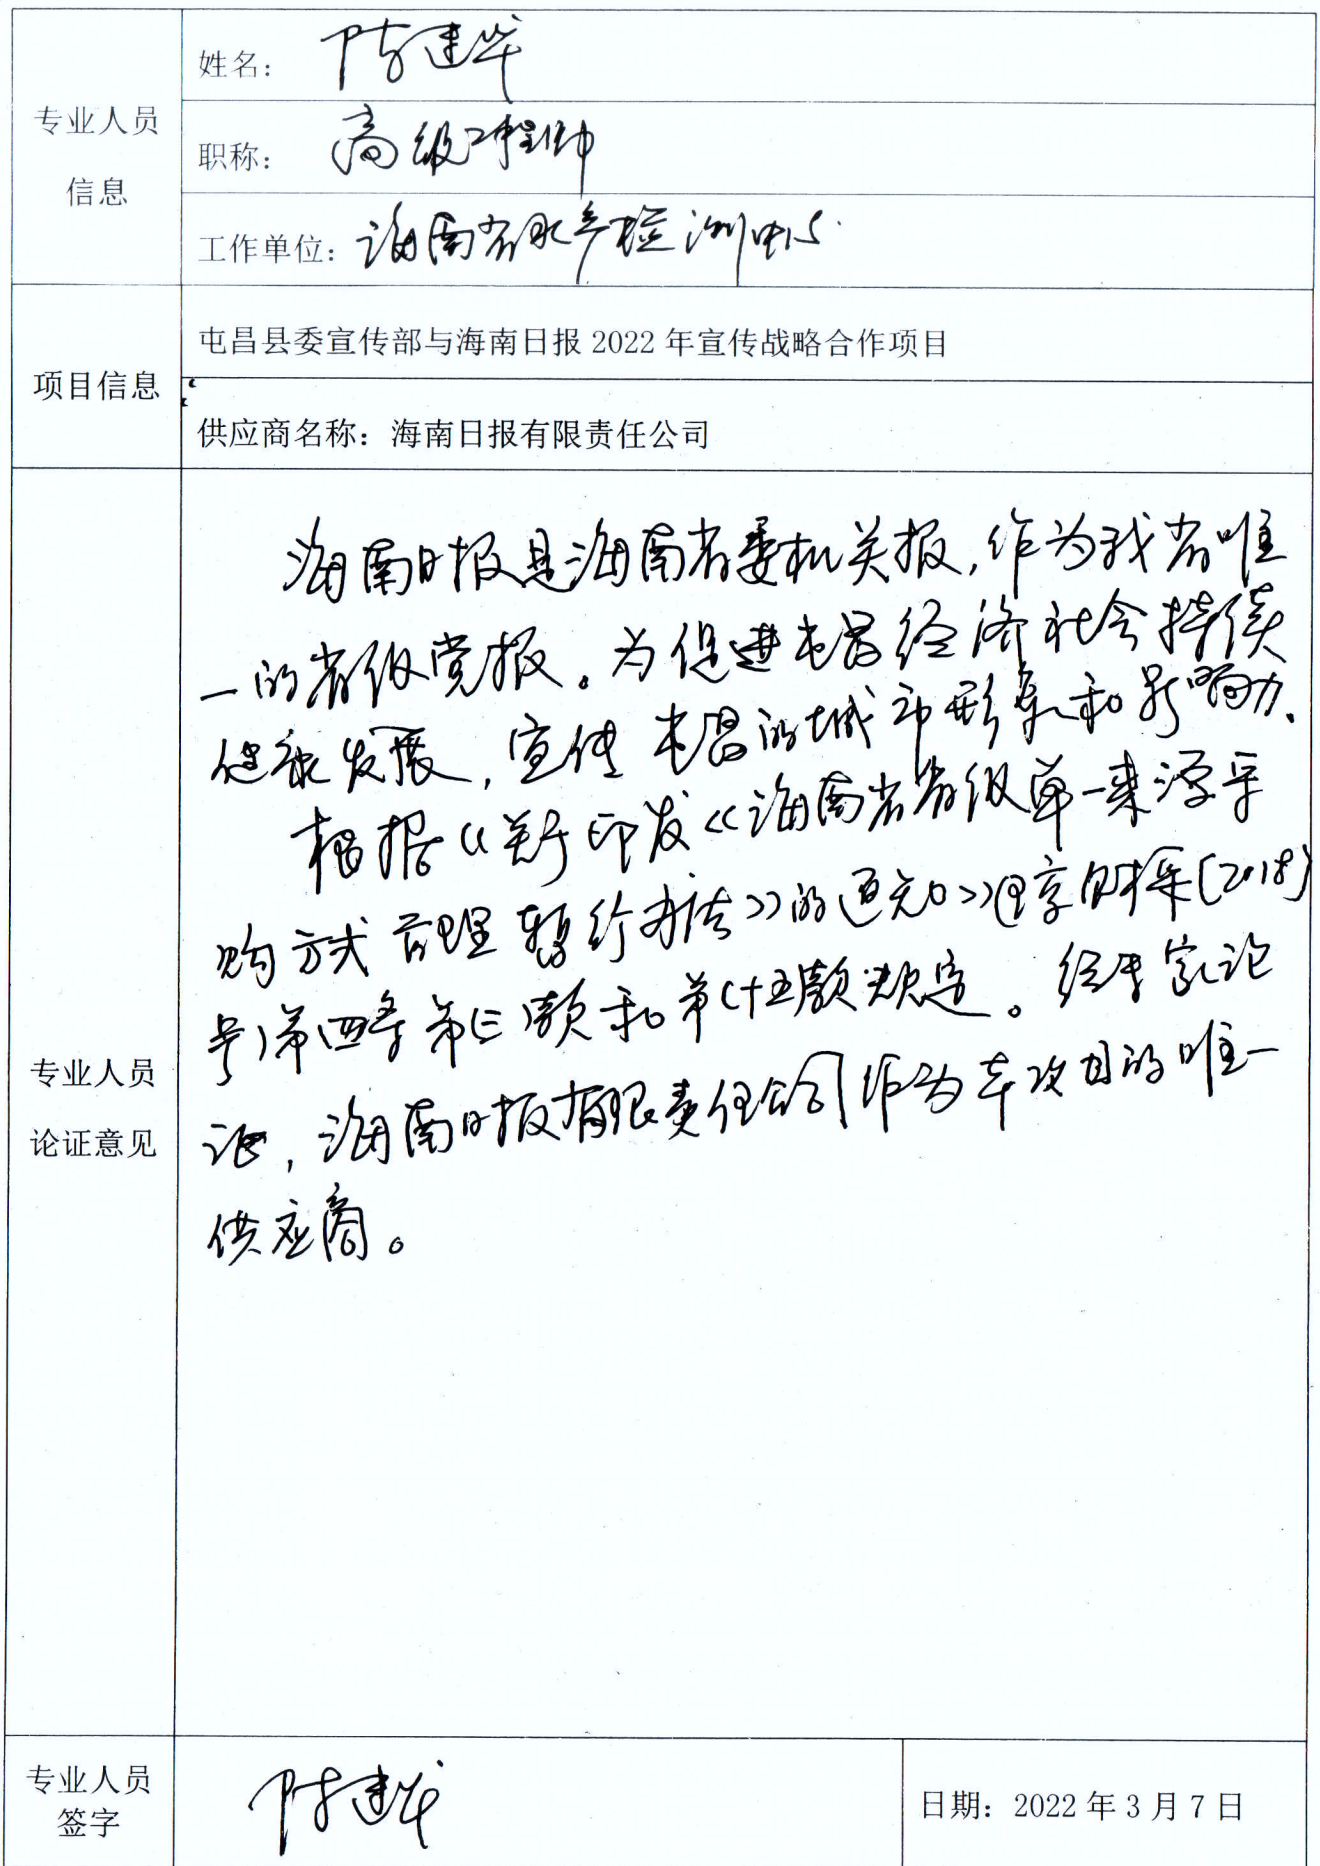 专业人员
信息
姓名: 陈建华
职称: 高级工程师
工作单位: 海南省水产检测中心
项目信息
屯昌县委宣传部与海南日报 2022 年宣传战略合作项目
供应商名称: 海南日报有限责任公司
专业人员
论证意见
海南日报是海南省委机关报,作为我省唯
一的省级党报。为促进屯昌经济社会持续
健康发展,宣传屯昌的城市形象和影响力.
根据《关于印发《海南省省级单一来源采
购方式管理暂行办法》的通知》(琼财采(2018)
号)第四条第(三)款和第(十五)款规定。经专家论
证,海南日报有限责任公司作为本次项目的唯一
供应商。
专业人员
签字
陈建华
日期: 2022 年 3 月 7 日